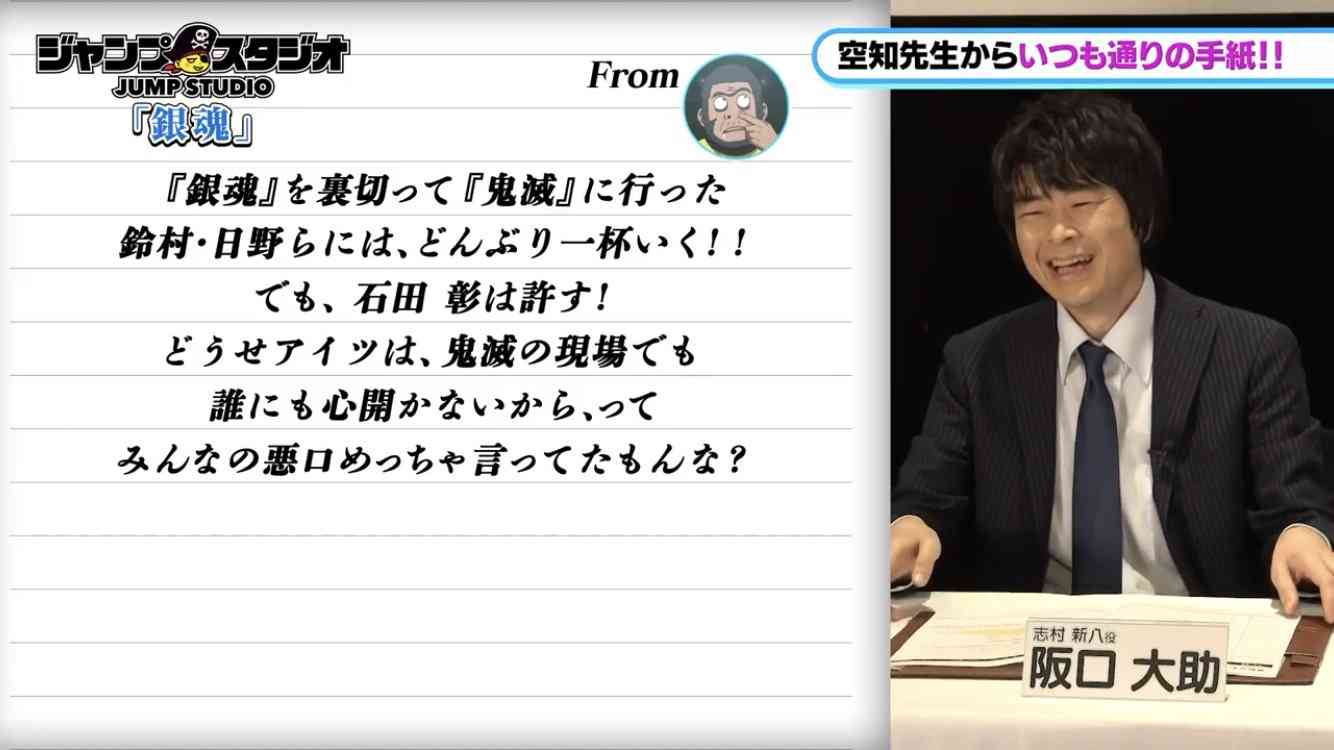 ジャンプスタジオ
JUMP STUDIO
『銀魂』
From
空知先生からいつも通りの手紙!!
『銀魂』を裏切って『鬼滅』に行った
鈴村・日野らには、どんぶり一杯いく！！
でも、石田 彰は許す！
どうせアイツは、鬼滅の現場でも
誰にも心開かないから、って
みんなの悪口めっちゃ言ってたもんな？
志村 新八役
阪口 大助